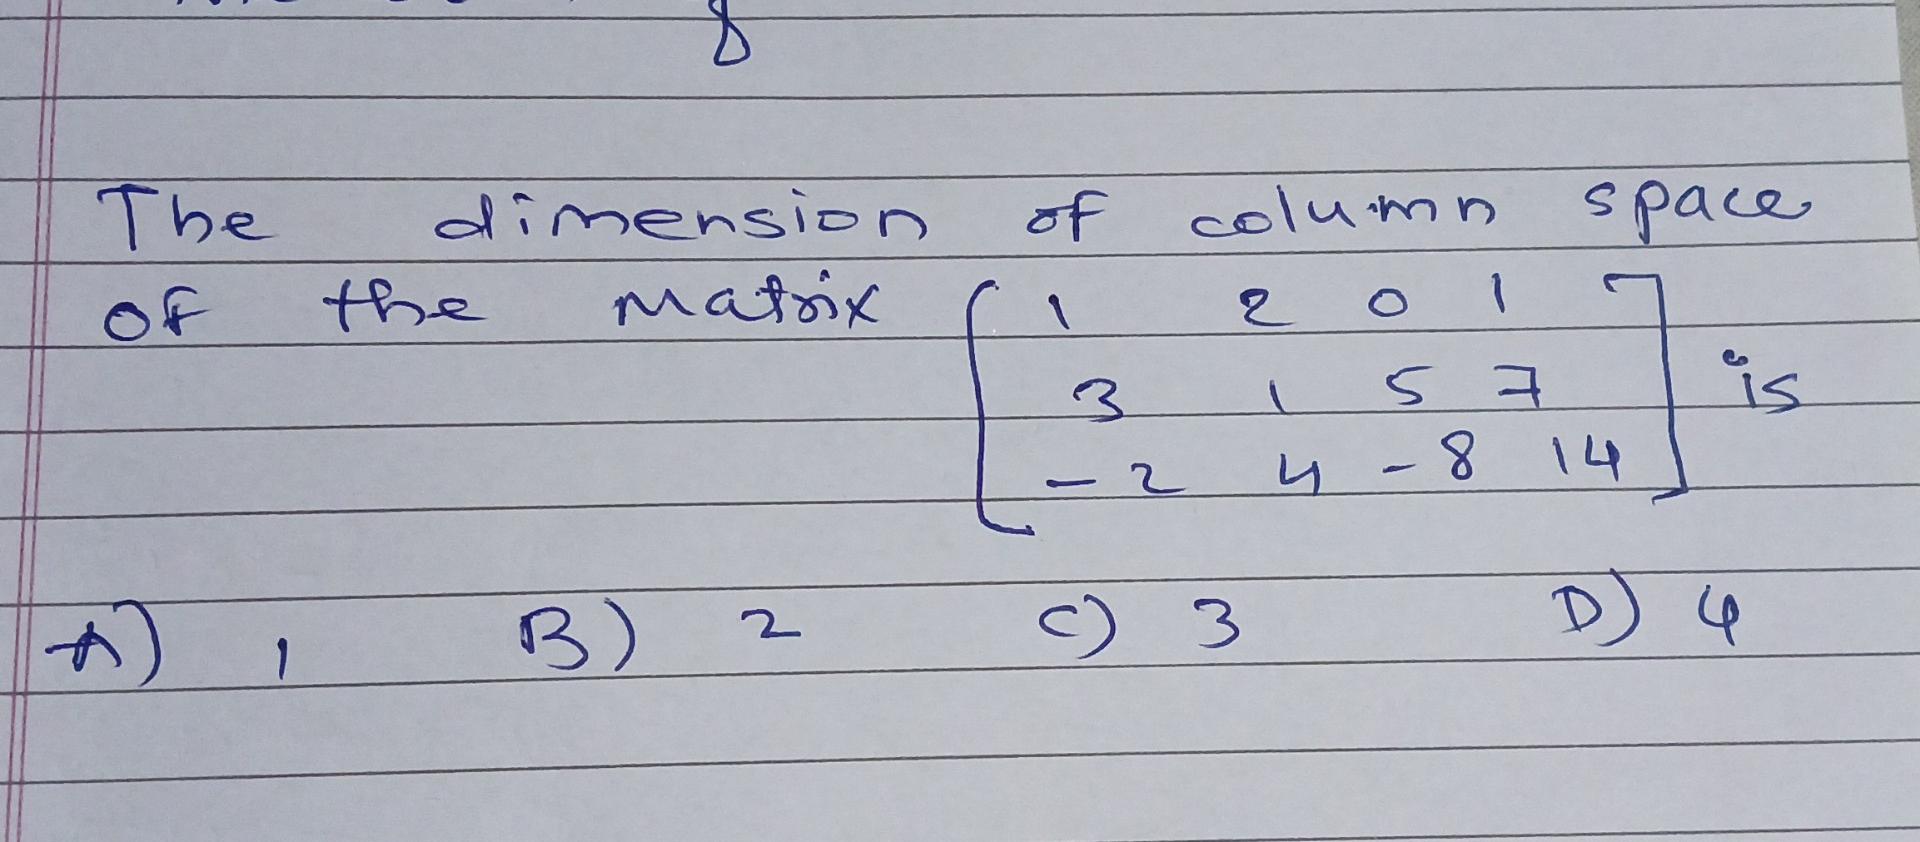 The dimension of column space
of the matrix [ 1 2 0 1
3 1 5 7 ] is
-2 4 -8 14
A) 1 B) 2 C) 3 D) 4